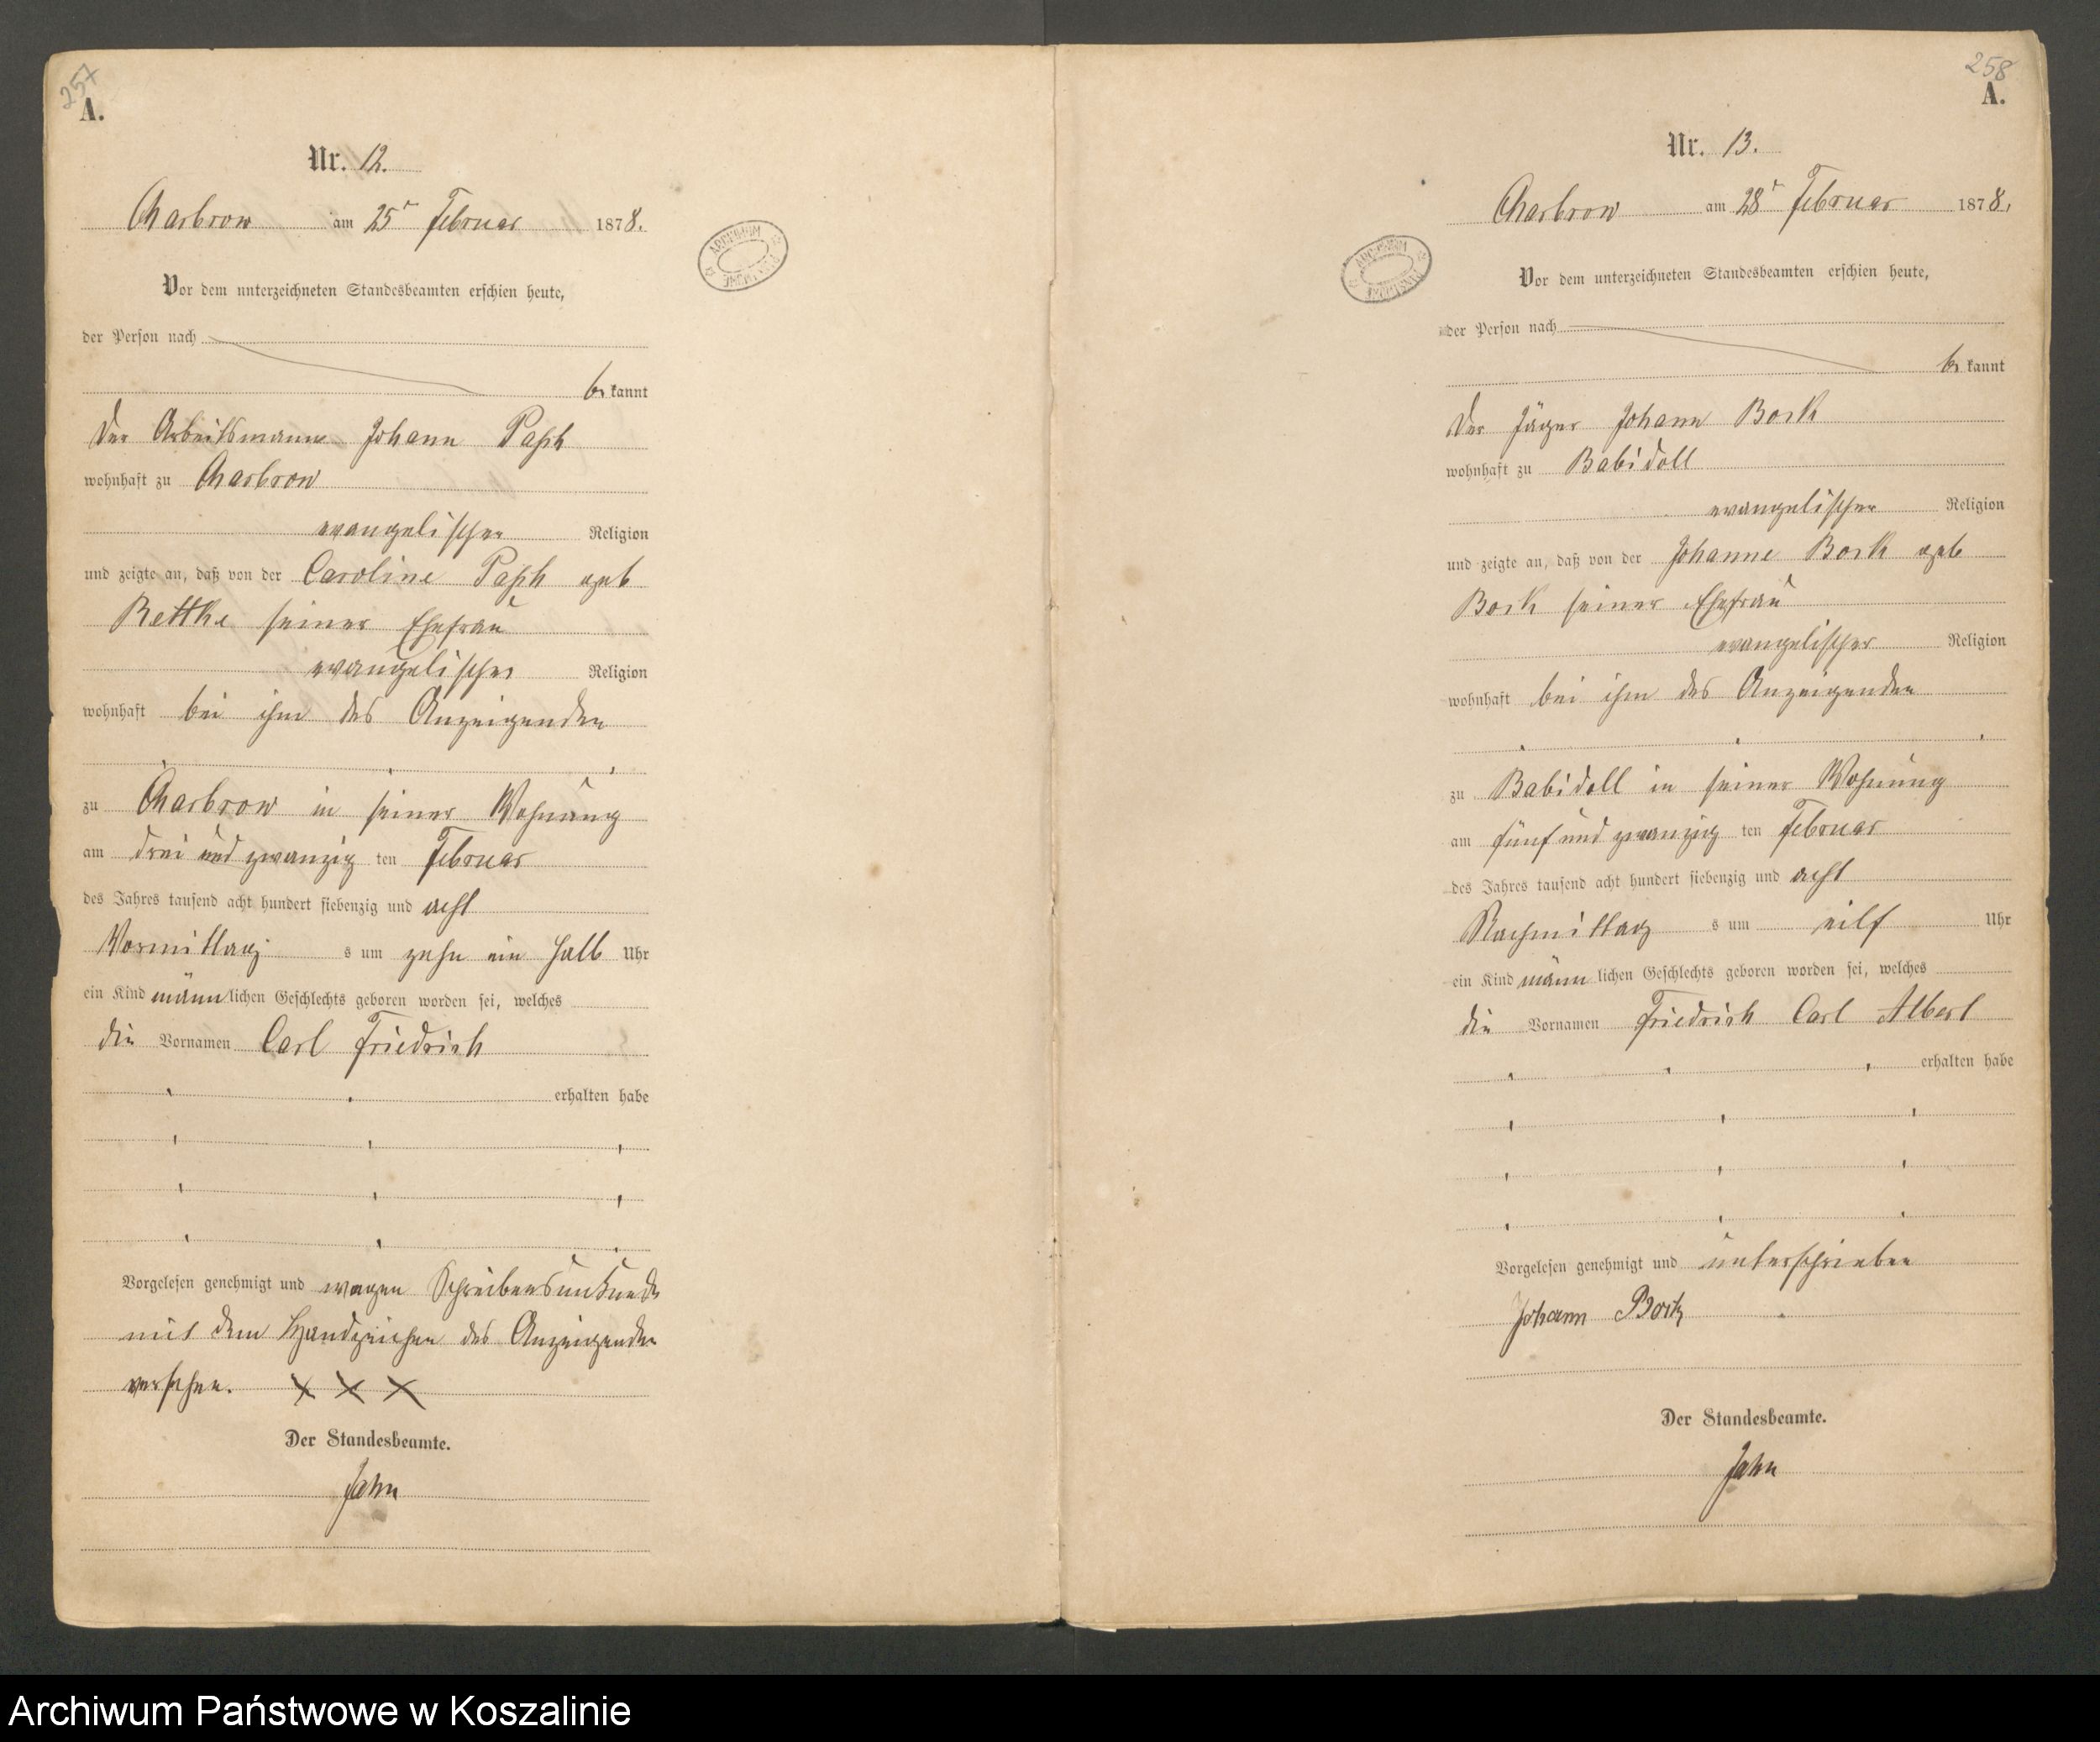 257
A.
Nr. 12.
Charbrow am 25t Februar 1878.
Vor dem unterzeichneten Standesbeamten erschien heute,
der Person nach
be kannt
der Arbeitsmann Johann Pasch
wohnhaft zu Charbrow
evangelischer Religion
und zeigte an, daß von der Caroline Pasch geb
Rettke seiner Ehefrau
evangelischer Religion
wohnhaft bei ihm des Anzeigenden
zu Charbrow in seiner Wohnung
am drei und zwanzig ten Februar
des Jahres tausend acht hundert siebenzig und acht
Vormittag s um zehn ein halb Uhr
ein Kind männ lichen Geschlechts geboren worden sei, welches
die Vornamen Carl Friedrich
erhalten habe
Vorgelesen genehmigt und wegen Schreibensunkunde
mit dem Handzeichen des Anzeigenden
versehen. XXX
Der Standesbeamte.
Jahn
258
A.
Nr. 13.
Charbrow am 28t Februar 1878.
Vor dem unterzeichneten Standesbeamten erschien heute,
der Person nach
be kannt
der Jäger Johann Bork
wohnhaft zu Babidoll
evangelischer Religion
und zeigte an, daß von der Johanne Bork geb
Bork seiner Ehefrau
evangelischer Religion
wohnhaft bei ihm des Anzeigenden
zu Babidoll in seiner Wohnung
am fünf und zwanzig ten Februar
des Jahres tausend acht hundert siebenzig und acht
Nachmittag s um eilf Uhr
ein Kind männ lichen Geschlechts geboren worden sei, welches
die Vornamen Friedrich Carl Albert
erhalten habe
Vorgelesen genehmigt und unterschrieben
Johann Bork
Der Standesbeamte.
Jahn
Archiwum Państwowe w Koszalinie